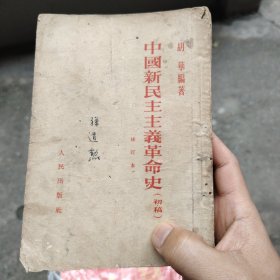 胡華編著
中國新民主主義革命史(初稿)
修訂本
人民出版社